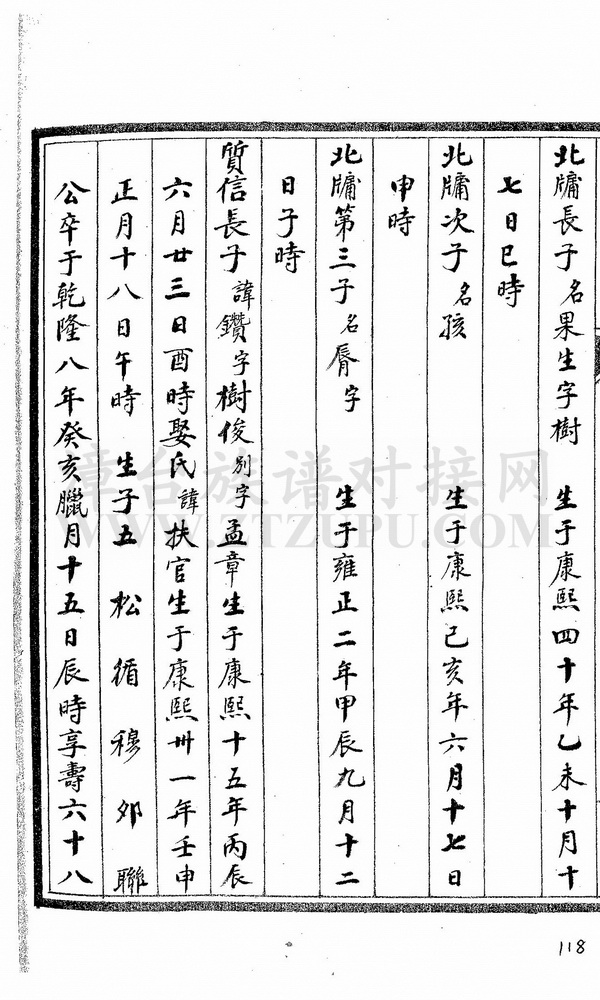 北牗長子名果生字樹　生于康熙四十年乙未十月十
七日巳時
北牗次子名孩　生于康熙己亥年六月十七日
申時
北牗第三子名脣字　生于雍正二年甲辰九月十二
日子時
質信長子諱鑽字樹俊別字孟章生于康熙十五年丙辰
六月廿三日酉時娶氏諱扶官生于康熙卅一年壬申
正月十八日午時　生子五　松　循　穆　邜　聯
公卒于乾隆八年癸亥臘月十五日辰時享壽六十八
漳台族谱对接网
WWW.ZTZUPU.COM
118